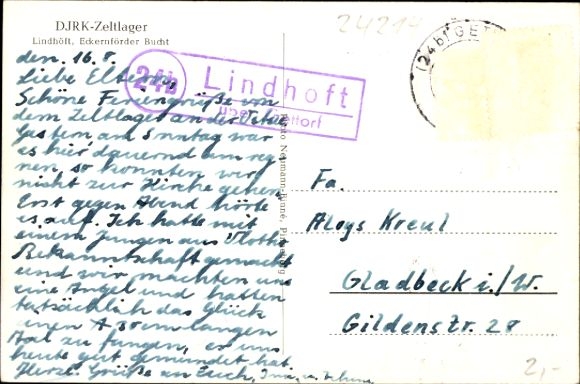 DJRK-Zeltlager
Lindhöft, Eckernförder Bucht
den. 16.8.
Liebe Eltern,
Schöne Feriengrüße von
dem Zeltlager an der
Gestern am Sonntag war
es hier dauernd am reg-
nen, so konnten wir
nicht zur Kirche gehen
Erst gegen Abend hörte
es auf. Ich hatte mit
einem Jungen aus Vlotho
Bekanntschaft gemacht
und wir machten uns
eine Angel und hatten
tatsächlich das Glück
einen langen
Aal zu fangen, er uns
heute gut gemundet hat.
Herzl. Grüße an Euch,
24214
24b
Lindhoft
über Gettorf
(24b) GETT
Fa.
Aloys Kreul
Gladbeck i./W.
Gildenstr. 28
2,-